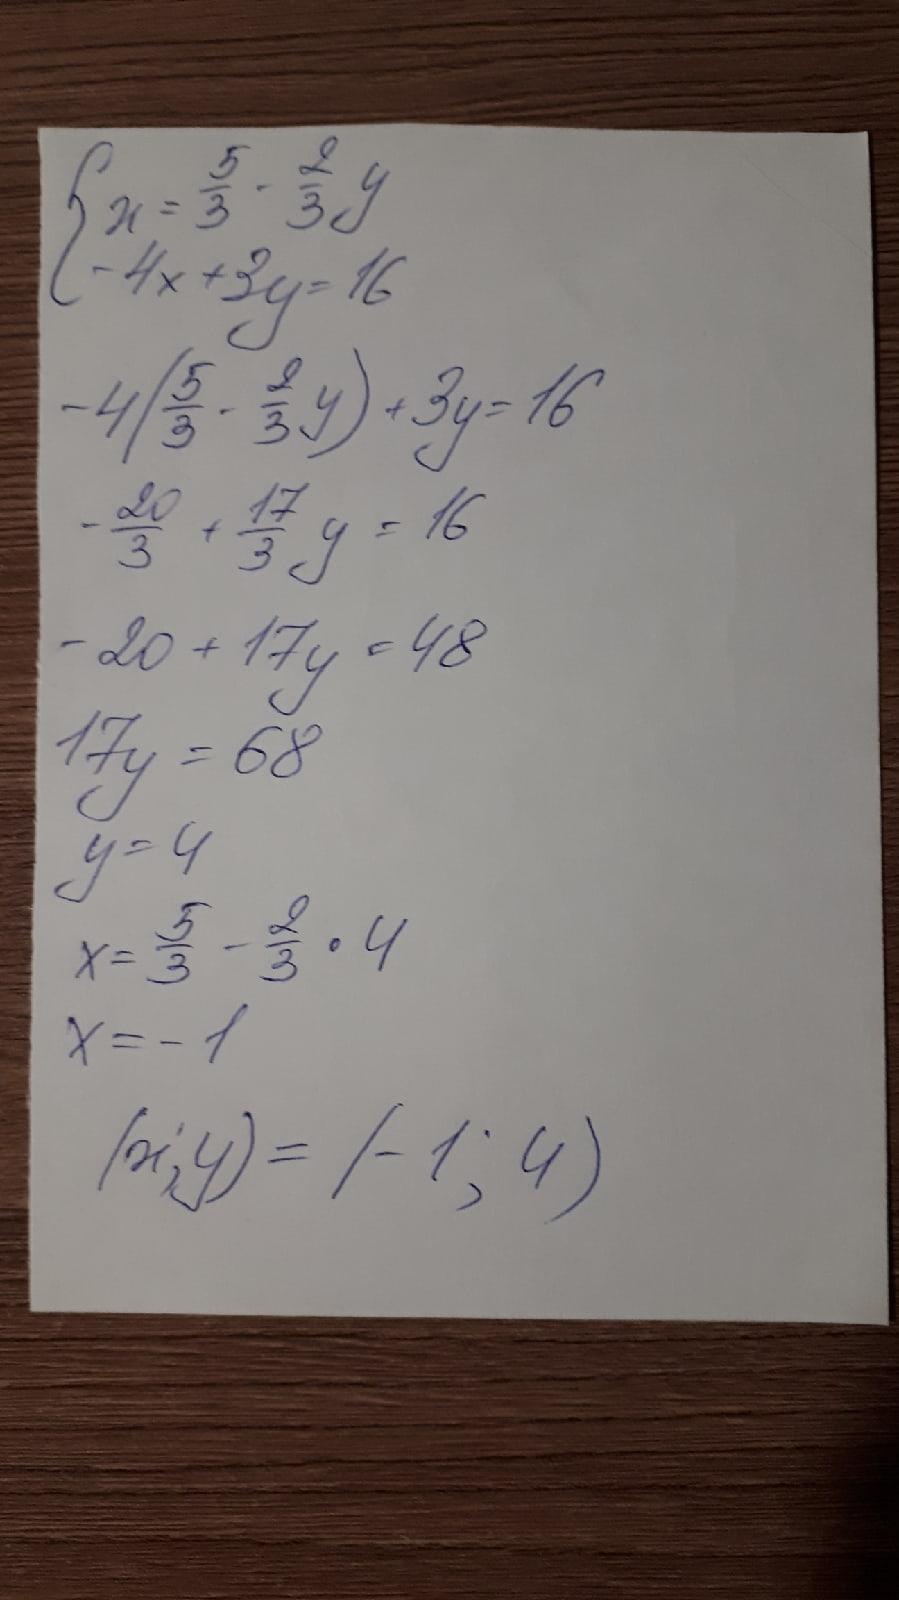 { x = 5/3 - 2/3 y
-4x + 3y = 16
-4(5/3 - 2/3 y) + 3y = 16
-20/3 + 17/3 y = 16
-20 + 17y = 48
17y = 68
y = 4
x = 5/3 - 2/3 • 4
x = -1
(x; y) = (-1; 4)